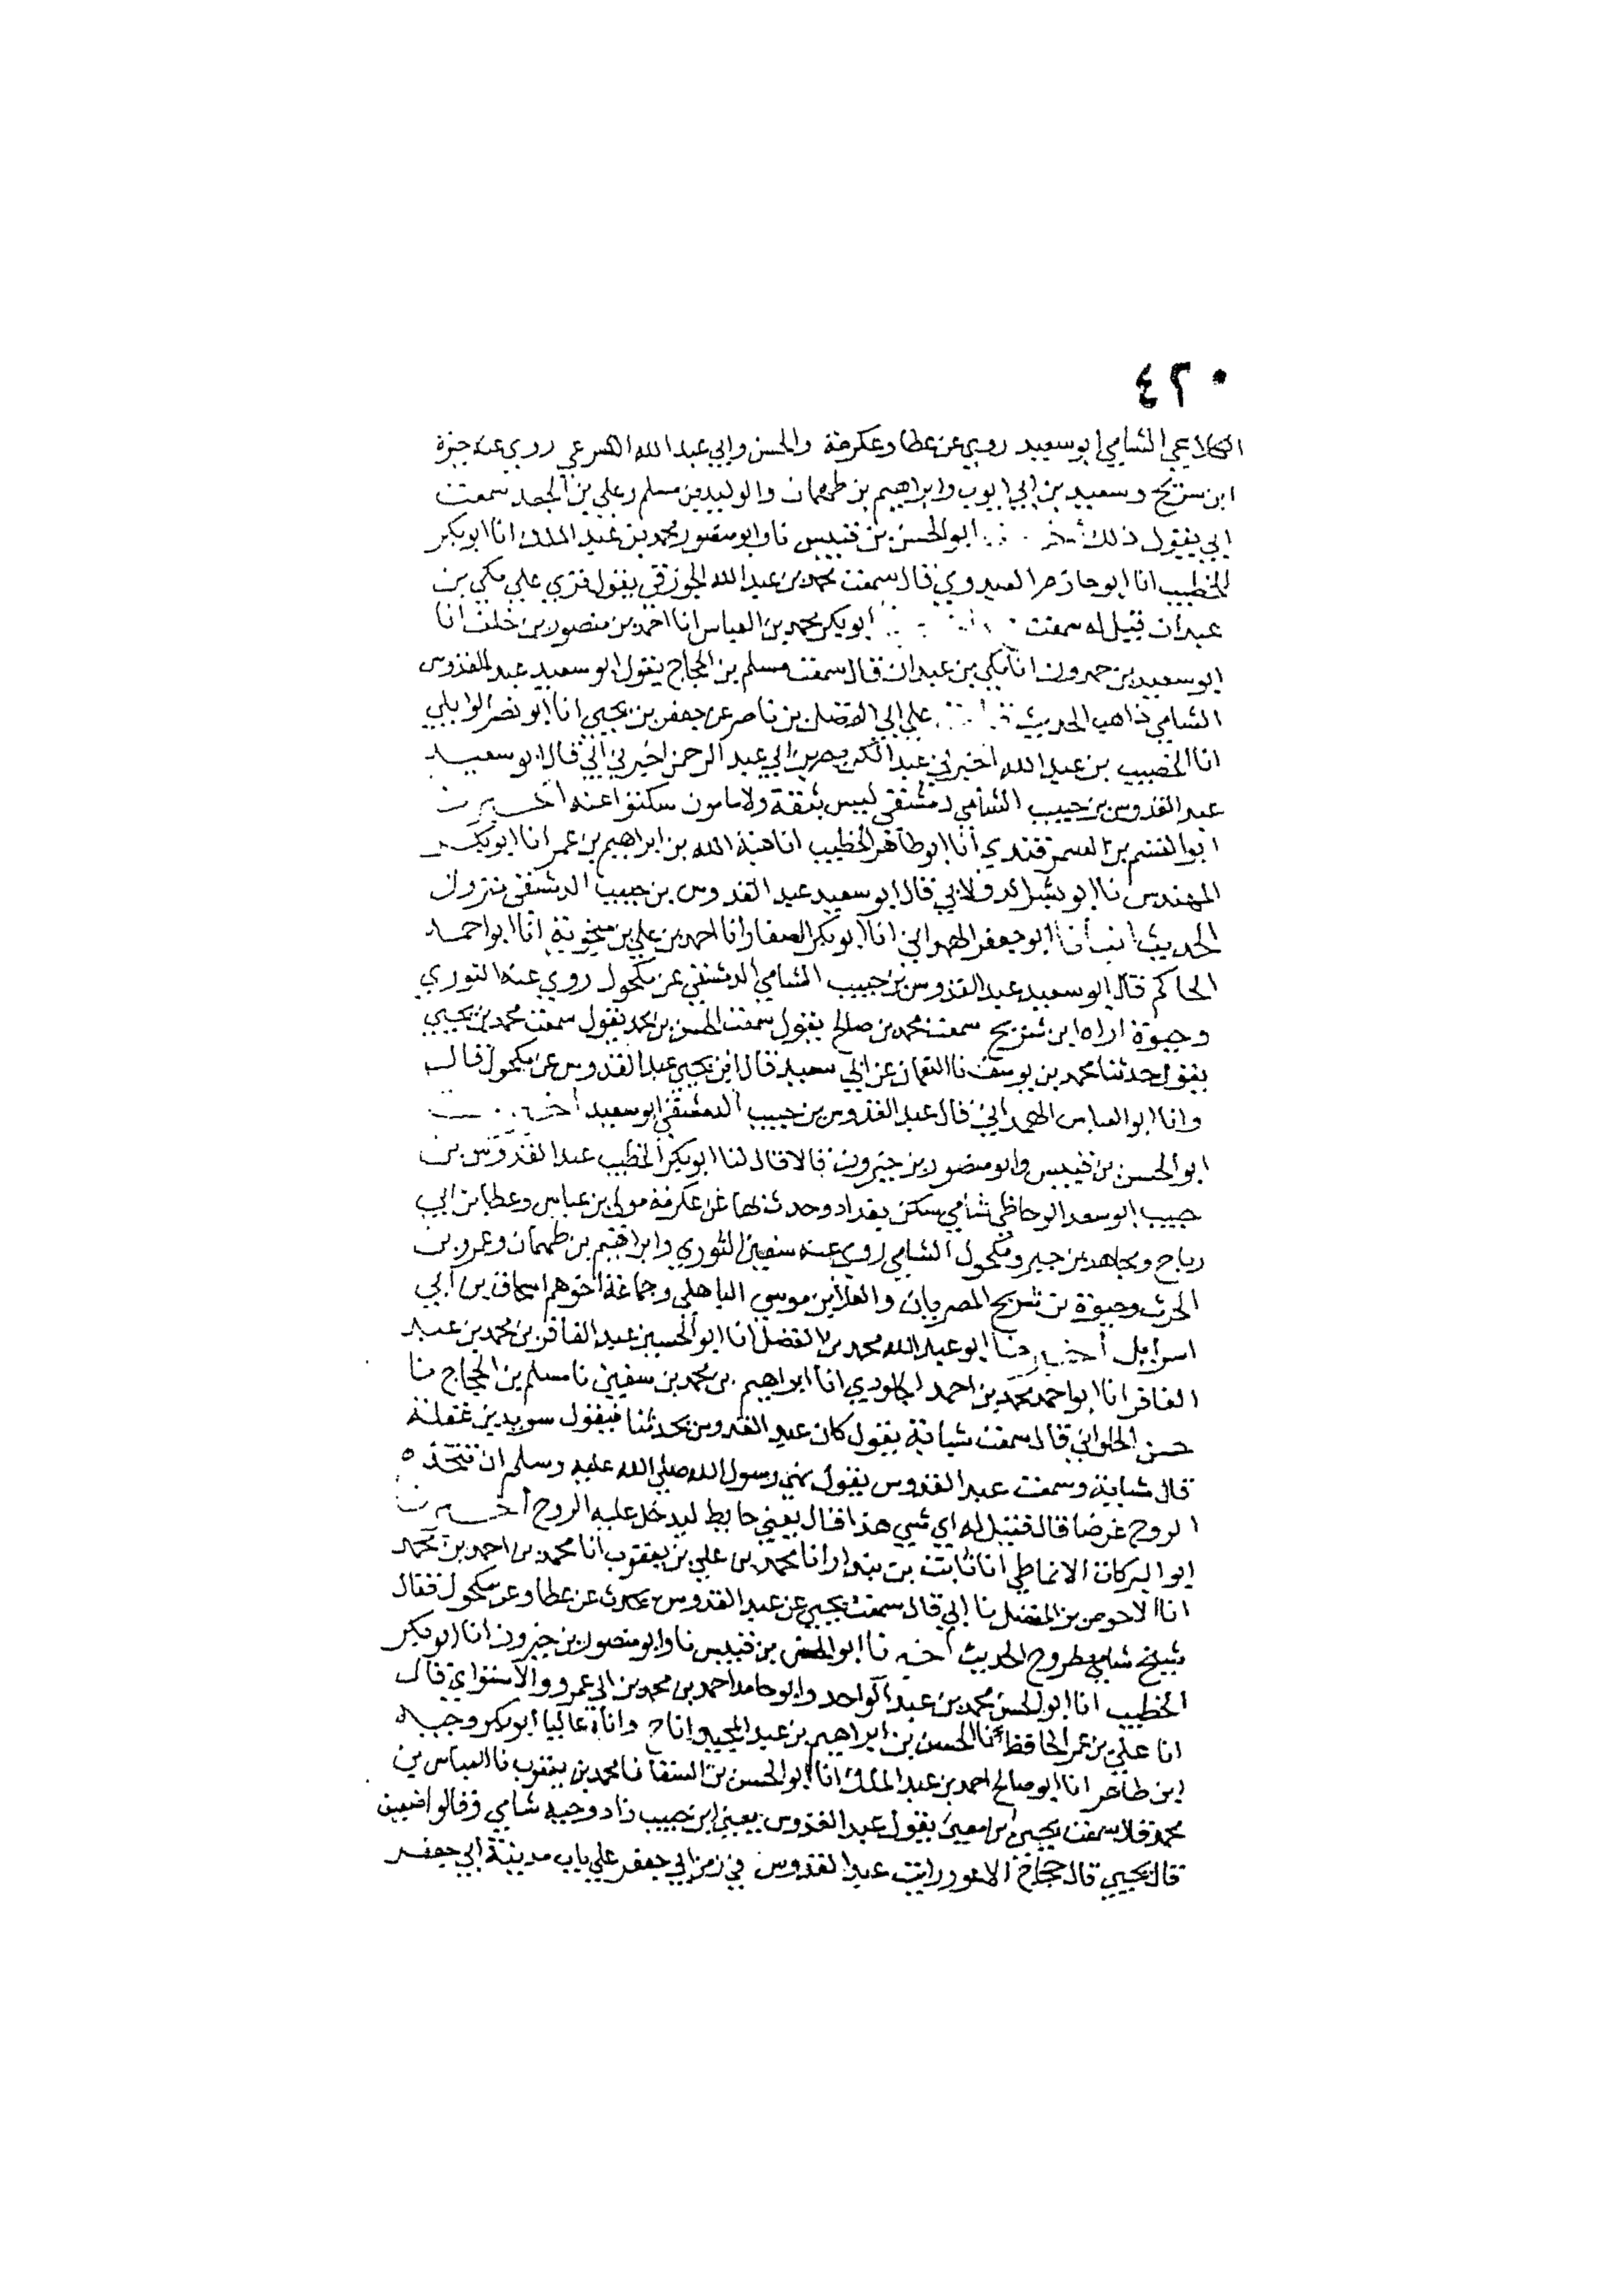 ٤٢٠
الكلاعي الشامي ابو سعيد روي عن عطا وعكرمة والحسن وابي عبد الله روي عنه حيوة
ابن شريح وسعيد بن ابي ايوب وابراهيم بن طهمان والوليد بن مسلم وعلي بن الجعد سمعت
ابي يقول ذلك ابو الحسن بن قبيس نا وابو منصور محمد بن عبد الملك انا ابو بكر
الخطيب انا ابو حازم العبدوي قال سمعت محمد بن عبد الله الجوزقي يقول قري علي مكي بن
عبدان قيل له سمعت ابو بكر محمد بن العباس انا احمد بن منصور بن خلف انا
ابو سعيد بن حمدون انا مكي بن عبدان قال سمعت مسلم بن الحجاج يقول ابو سعيد عبد القدوس
الشامي ذاهب الحديث علي ابي الفضل بن ناصر عن جعفر بن يحيي انا ابو نصر الوايلي
انا الخصيب بن عبد الله اخبرني عبد الكريم بن ابي عبد الرحمن اخبرني ابي قال ابو سعيد
عبد القدوس بن حبيب الشامي دمشقي ليس بثقة ولا مامون سكتوا عنه اخبرنا
ابو القسم بن السمرقندي انا ابو طاهر الخطيب انا هبة الله بن ابراهيم بن عمر انا ابو بكر
المهندس نا ابو بشر الدولابي قال ابو سعيد عبد القدوس بن حبيب الدمشقي متروك
الحديث انبانا ابو جعفر الهمداني انا ابو بكر الصفار انا احمد بن علي بن منجويه انا ابو احمد
الحاكم قال ابو سعيد عبد القدوس بن حبيب الشامي الدمشقي عن مكحول روي عنه الثوري
وحيوة اراه ابن شريح سمعت محمد بن صالح يقول سمعت الحسن بن محمد يقول سمعت محمد بن يحيي
يقول حدثنا محمد بن يوسف نا النعمان عن ابي سعيد قال ابن يحيي عبد القدوس عن مكحول قال
وانا ابو العباس الهمداني قال عبد القدوس بن حبيب الدمشقي ابو سعيد
ابو الحسن بن قبيس وابو منصور بن خيرون قالا قال لنا ابو بكر الخطيب عبد القدوس بن
حبيب ابو سعد الوحاظي شامي سكن بغداد وحدث بها عن عكرمة مولي بن عباس وعطا بن ابي
رباح ومجاهد بن جبر ومكحول الشامي روي عنه سفين الثوري وابراهيم بن طهمان وعمرو بن
الحرث وحيوة بن شريح المصريان والعلا بن موسي الباهلي وجماعة اخرهم اسحاق بن ابي
اسرايل اخبرنا ابو عبد الله محمد بن الفضل انا ابو الحسين عبد الغافر بن محمد بن عبد
الغافر انا ابو احمد محمد بن احمد الجلودي انا ابراهيم بن محمد بن سفين نا مسلم بن الحجاج نا
حسن الحلواني قال سمعت شبابة يقول كان عبد القدوس يحدثنا فيقول سويد بن عقلة
قال شبابة وسمعت عبد القدوس يقول نهي رسول الله صلي الله عليه وسلم ان تتخذ
الروح عرضا قال فقيل له اي شي هذا قال يعني حايط ليدخل عليه الروح اخبرنا
ابو البركات الانماطي انا ثابت بن بندار انا محمد بن علي بن يعقوب انا محمد بن احمد بن محمد
انا الاحوص بن المفضل نا ابي قال سمعت يحيي عن عبد القدوس يحدث عن عطا وعن مكحول فقال
شيخ شامي مطروح الحديث اخبرنا ابو الحسن بن قبيس نا وابو منصور بن خيرون انا ابو بكر
الخطيب انا ابو الحسن محمد بن عبد الواحد وابو حامد احمد بن محمد بن ابي عمرو الاستوايي قال
انا علي بن عمر الحافظ نا الحسن بن ابراهيم بن عبد المجيد وانا ح وانا عاليا ابو بكر وجيه
ابن طاهر انا ابو صالح احمد بن عبد الملك انا ابو الحسن بن السقا نا محمد بن يعقوب نا العباس بن
محمد قال سمعت يحيي بن معين يقول عبد القدوس يعني ابن حبيب زاد وجيه شامي وقالوا ضعيف
قال يحيي قال حجاج الاعور رايت عبد القدوس في زمن ابي جعفر علي باب مدينة ابي جعفر